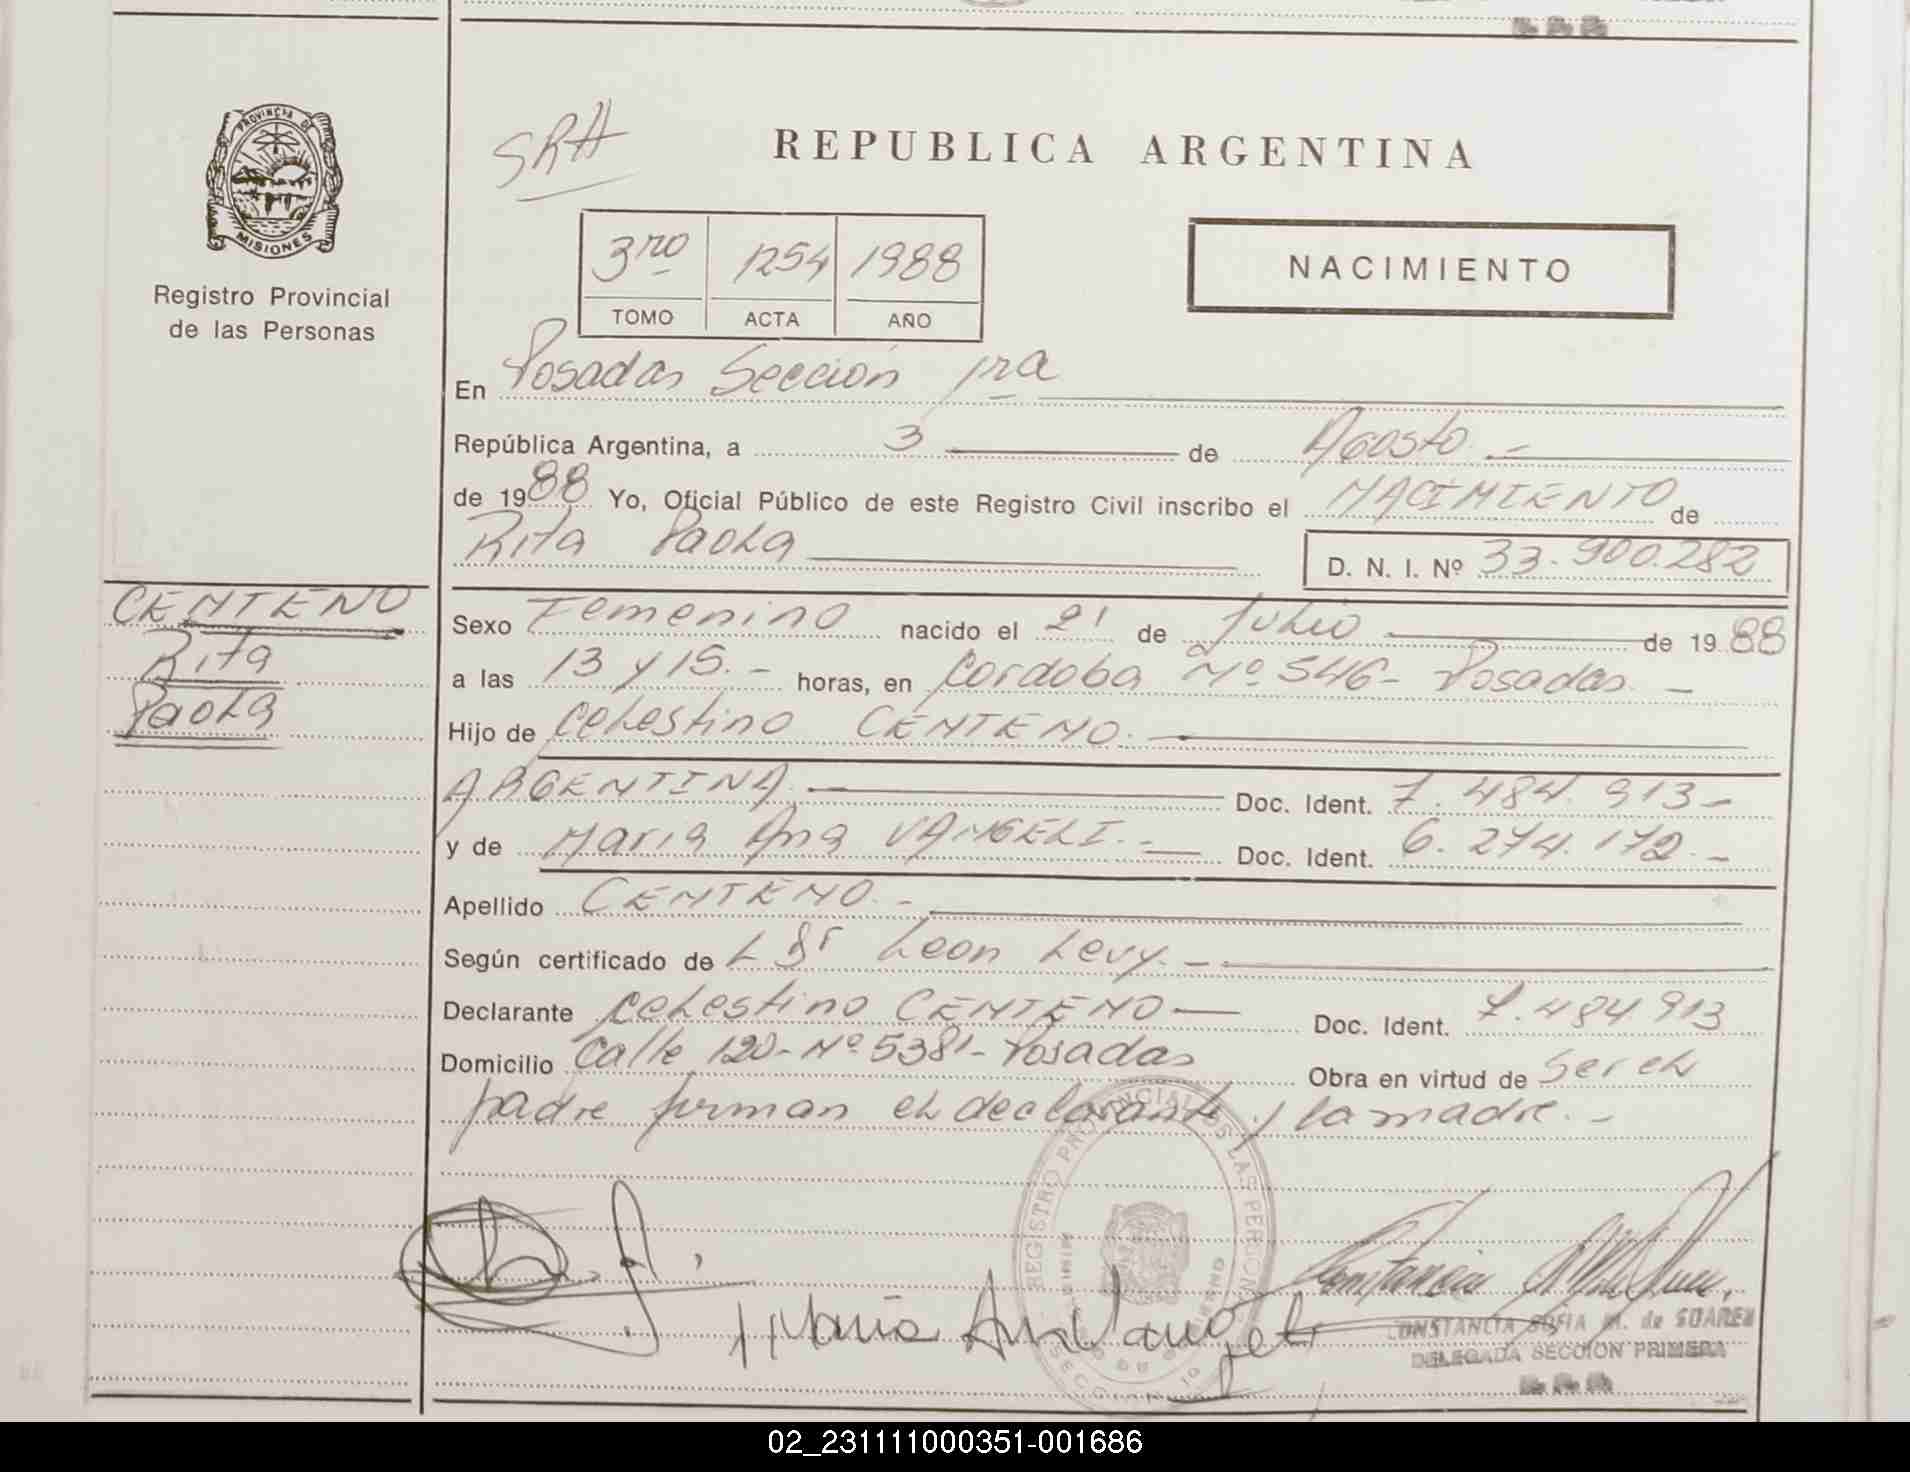 SRA
REPUBLICA ARGENTINA
PROVINCIA DE
MISIONES
Registro Provincial
de las Personas
3ro 1254 1988
TOMO ACTA AÑO
NACIMIENTO
En Posadas Sección 1ra
República Argentina, a 3 de Agosto
de 1988 Yo, Oficial Público de este Registro Civil inscribo el NACIMIENTO de
Rita Paola
D. N. I. Nº 33.900.282
CENTENO
Rita
Paola
Sexo Femenino nacido el 21 de Julio de 1988
a las 13 y 15.- horas, en Cordoba Nº 546- Posadas.-
Hijo de Celestino CENTENO.
ARGENTINA. Doc. Ident. 7.484.913-
y de Maria Ana VANGELI.- Doc. Ident. 6.274.172.-
Apellido CENTENO.-
Según certificado de L Dr Leon Levy.-
Declarante Celestino CENTENO- Doc. Ident. 7.484.913
Domicilio Calle 120-Nº 5381-Posadas Obra en virtud de Ser el
padre firman el declarante y la madre.-
REGISTRO PROVINCIAL DE LAS PERSONAS
Maria Ana Vangeli
CONSTANCIA SOFIA M. de SUAREZ
DELEGADA SECCION PRIMERA
02_231111000351-001686